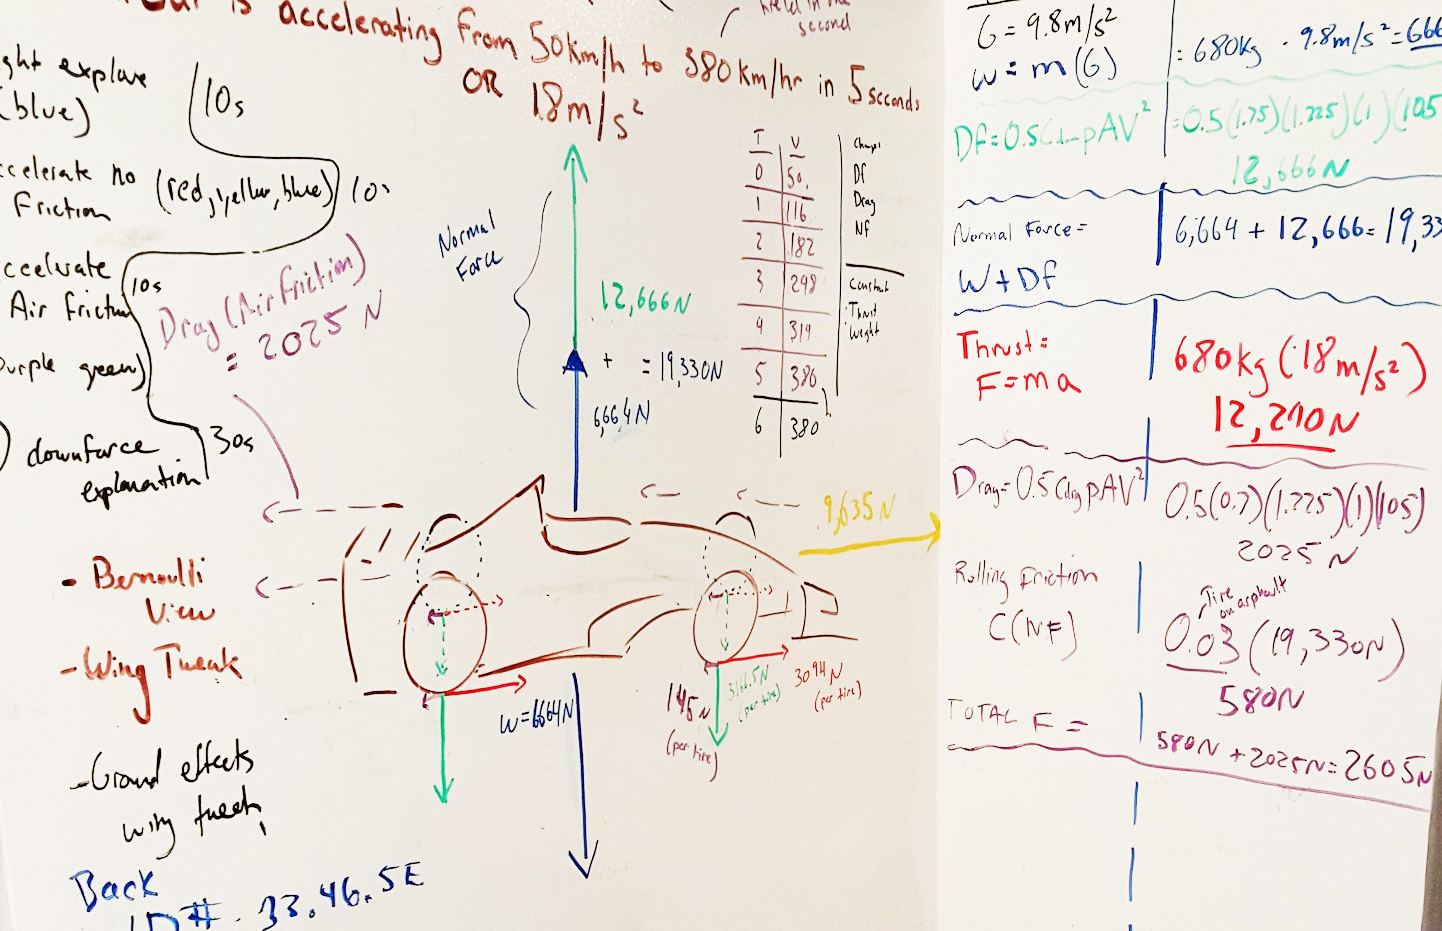 is accelerating from 50km/h to 380km/hr in 5seconds
OR
18m/s²
second
ght explave
(blue)
10s
ccelerate no
Friction
(red, yellow, blue)
10s
ccelerate
Air friction
10s
purple green)
downforce
explanation
30s
- Bernoulli
View
- Wing Tweak
- Ground effects
wing tweek
Back
ID# . 33.46.5E
Drag (Air Friction)
= 2025 N
Normal
Force
12,666N
+ = 19,330N
6,664N
T V
0 50
1 116
2 182
3 248
4 314
5 380
6 380
Df
Drag
Nf
Constant
Thrust
Weight
9,635N
W=6664N
145N
(per tire)
3166.5N
(per tire)
3094N
(per tire)
G = 9.8m/s²
W = m(G)
= 680kg · 9.8m/s² = 666
Df = 0.5 Cd pAV²
= 0.5(1.75)(1.225)(1)(105
12,666N
Normal Force =
W + Df
6,664 + 12,666 = 19,33
Thrust =
F = ma
680kg (18m/s²)
12,240N
Drag = 0.5 Cdrg pAV²
0.5(0.7)(1.225)(1)(105)
2025 N
Rolling Friction
C(NF)
Tire
on asphalt
0.03 (19,330N)
580N
TOTAL F =
580N + 2025N = 2605N